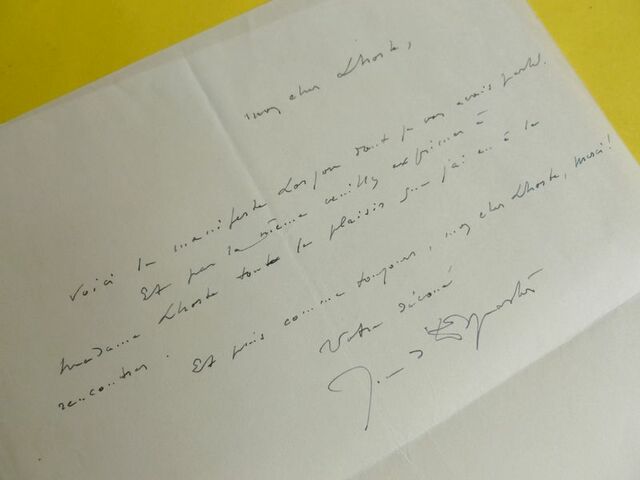 Mon cher Lhoste,
Voici le manifeste dont je vous avais parlé.
Et par la même veuillez exprimer à
Madame Lhoste tout le plaisir que j'ai eu à la
rencontrer.
Et puis comme toujours, mon cher Lhoste, merci!
Votre dévoué